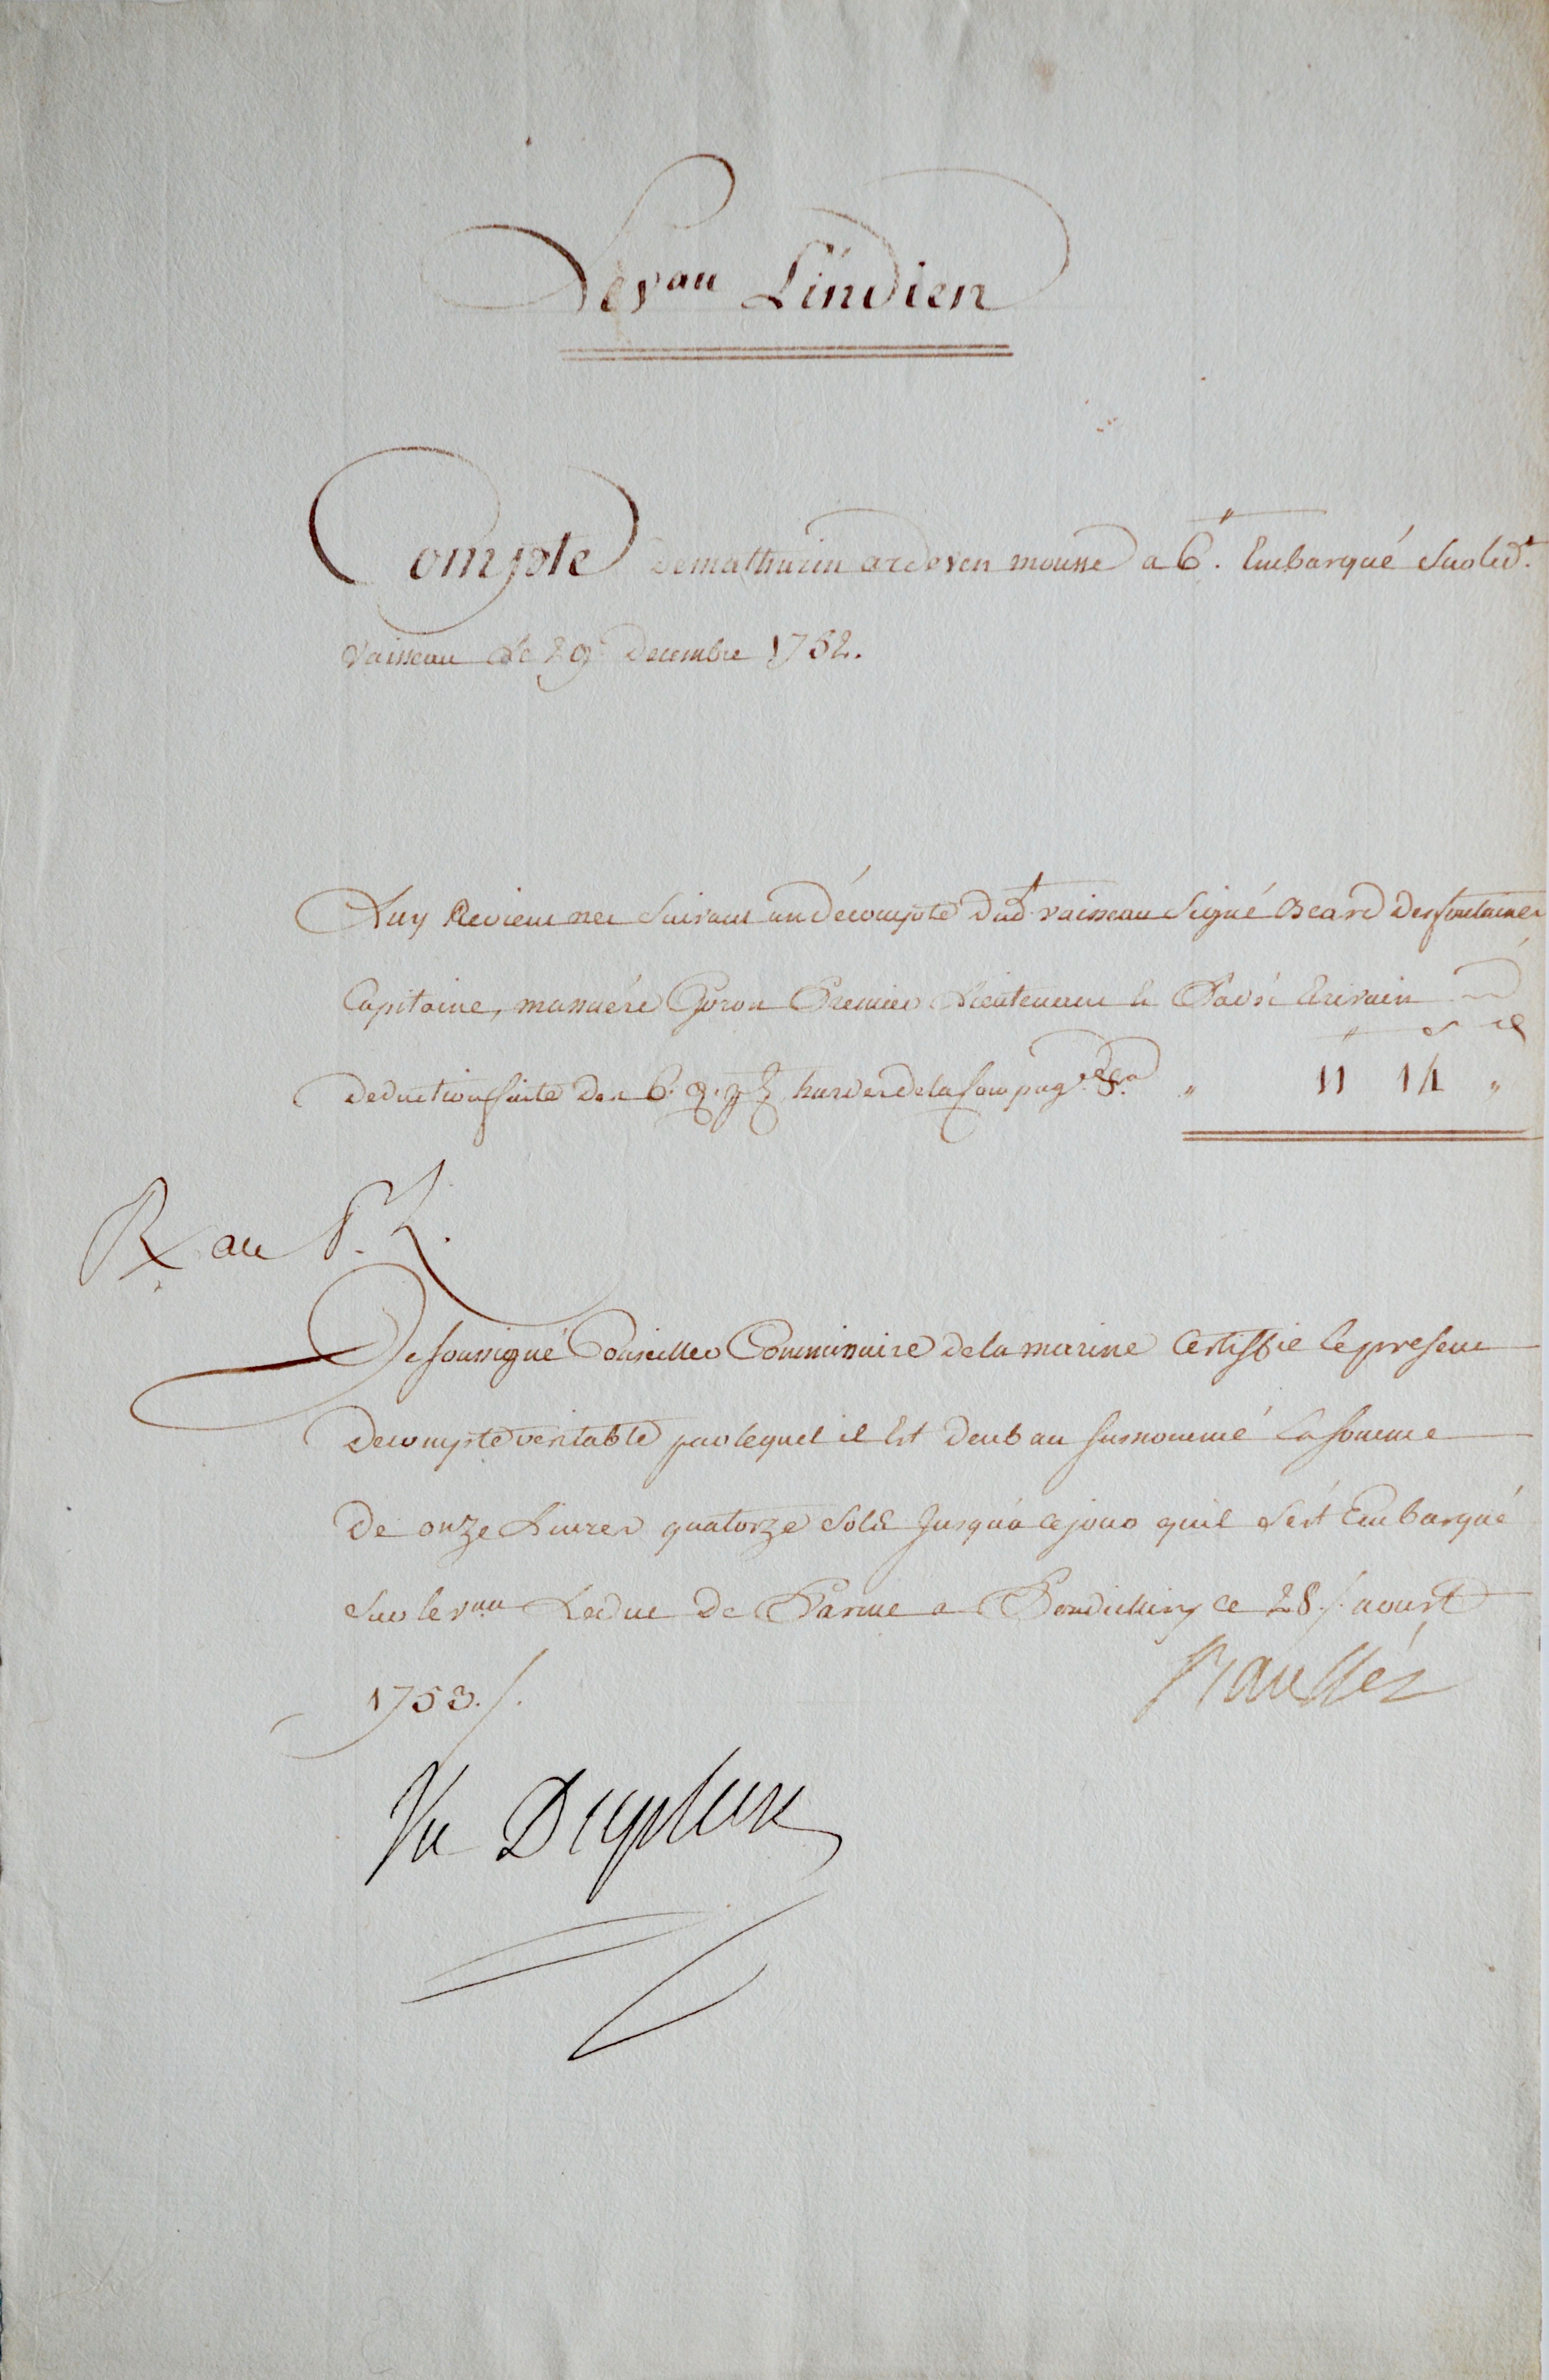 Le v.au L'indien
Compte de mathurin ardeven mousse a 6.# Embarqué Sur led.t
vaisseau Le 29 Decembre 1752.
Luy Revient net Suivant un décompte dud.t vaisseau Signé Beard Desfontaines
Capitaine, Goron Premier Lieutenant Le Ecrivain
# s d
Deduction faite des 6. hardes de la Compag.e " 11 14 "
R au
Je soussigné Conseiller Commissaire de la marine Certiffie le present
Decompte veritable par lequel il Est deub au surnommé La somme
De onze Livres quatorze Sols Jusqu'a ce jour qu'il s'est Embarqué
Sur le v.au Le duc De Parme a Pondichery ce 28./. aoust
1753./.
Vu Dupleix